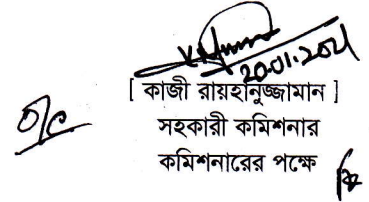 20.01.2021
[ কাজী রায়হানুজ্জামান ]
সহকারী কমিশনার
কমিশনারের পক্ষে